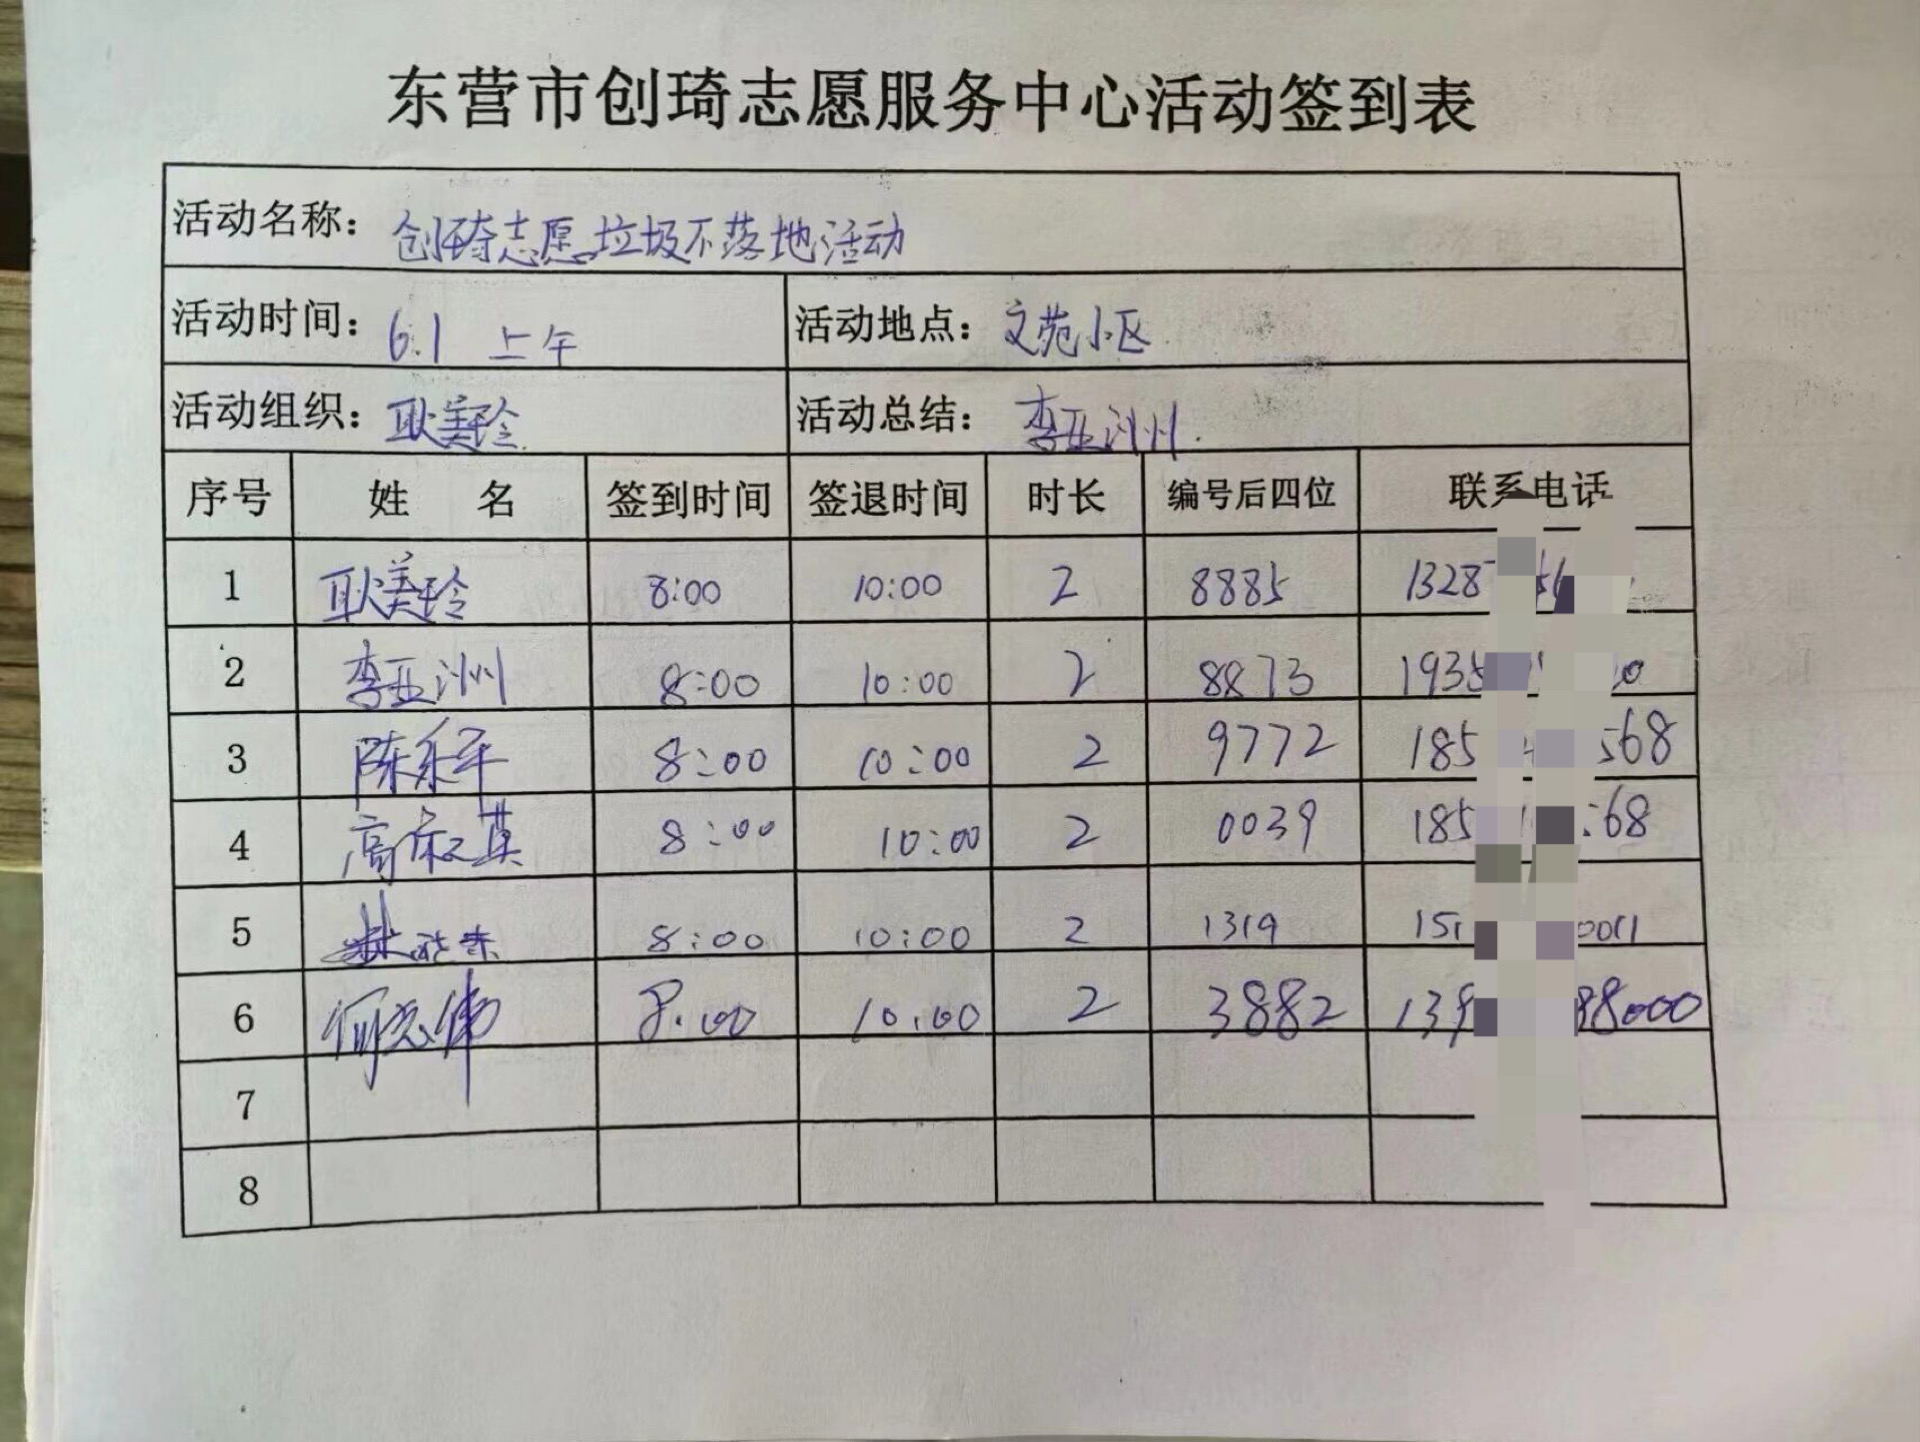 东营市创琦志愿服务中心活动签到表
活动名称：创琦志愿垃圾不落地活动
活动时间：6.1 上午 活动地点：文苑小区
活动组织：耿美玲 活动总结：李亚洲
序号 姓 名 签到时间 签退时间 时长 编号后四位 联系电话
1 耿美玲 8:00 10:00 2 8885 1328
2 李亚洲 8:00 10:00 2 8873 1935
3 陈永平 8:00 10:00 2 9772 185 568
4 高 英 8:00 10:00 2 0039 185 68
5 8:00 10:00 2 1319 151 0011
6 何志伟 8.00 10.00 2 3882 139 88000
7
8